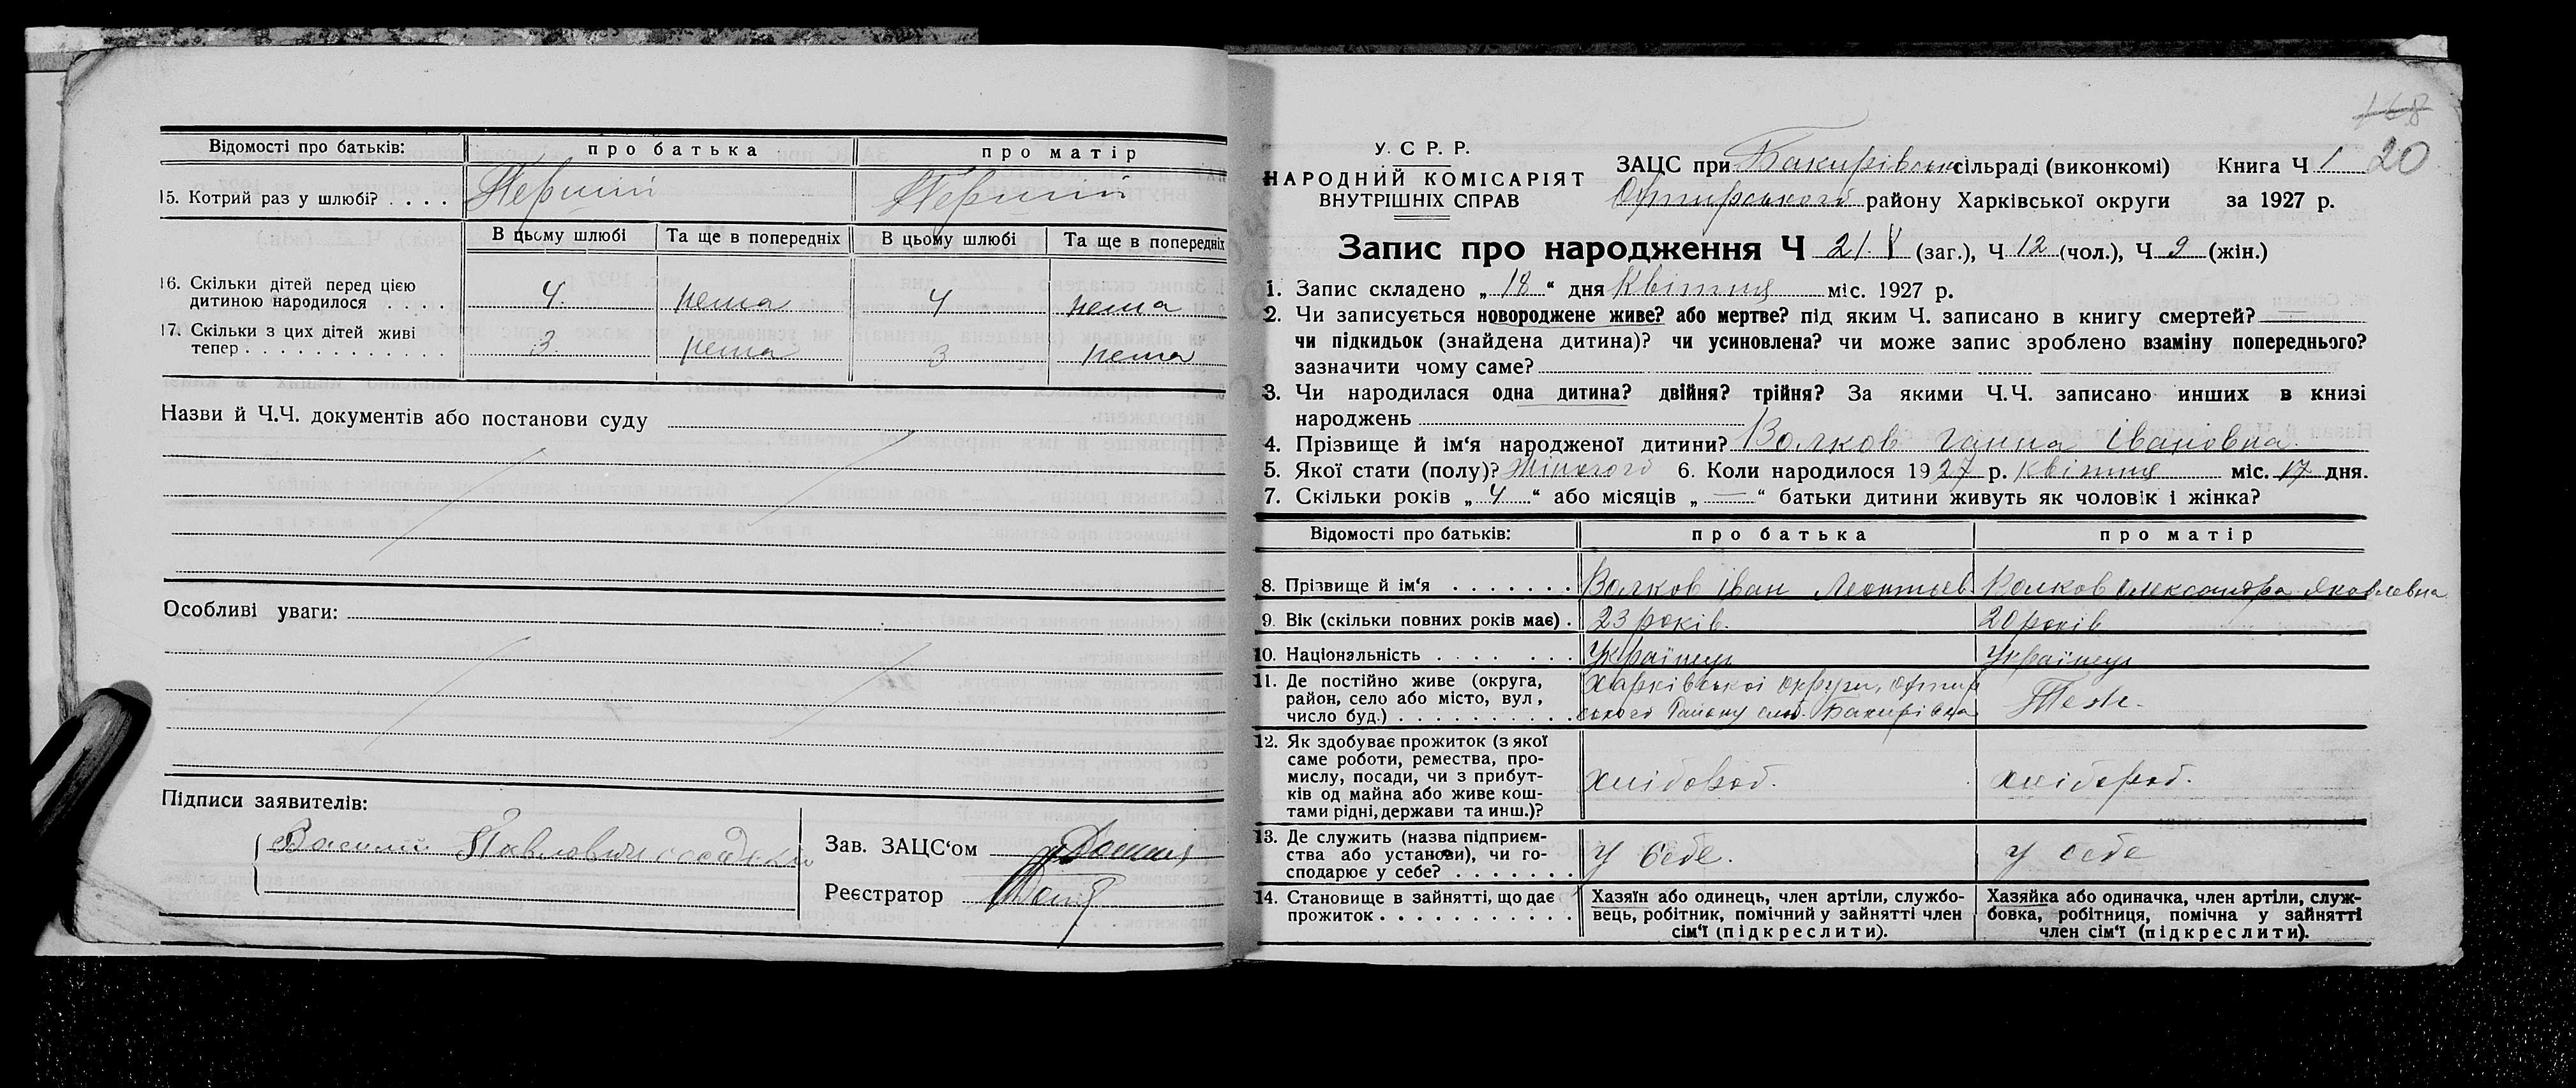 Відомості про батьків: про батька про матір
15. Котрий раз у шлюбі? . . . . Перший Перший
В цьому шлюбі Та ще в попередніх В цьому шлюбі Та ще в попередніх
16. Скільки дітей перед цією
дитиною народилося . . . . 4. нема 4 нема
17. Скільки з цих дітей живі
тепер . . . . . . . . . . . . . 3. нема 3 нема
Назви й Ч.Ч. документів або постанови суду
Особливі уваги:
Підписи заявителів:
Василий Павлович
Зав. ЗАЦС‘ом
Реєстратор
168
У. С Р. Р.
НАРОДНИЙ КОМІСАРІЯТ
ВНУТРІШНІХ СПРАВ
ЗАЦС при Бакирівськ сільраді (виконкомі) Книга Ч 1 20
Охтирського району Харківської округи за 1927 р.
Запис про народження Ч 21. (заг.), Ч 12 (чол.), Ч 9 (жін.)
1. Запис складено „ 18 “ дня Квітня міс. 1927 р.
2. Чи записується новороджене живе? або мертве? під яким Ч. записано в книгу смертей? —
чи підкидьок (знайдена дитина)? чи усиновлена? чи може запис зроблено взаміну попереднього?
зазначити чому саме?
3. Чи народилася одна дитина? двійня? трійня? За якими Ч.Ч. записано инших в книзі
народжень
4. Прізвище й ім‘я народженої дитини? Волков Ганна Івановна.
5. Якої стати (полу)? жіночого 6. Коли народилося 1927 р. квітня міс. 17 дня.
7. Скільки років „ 4 “ або місяців „ — “ батьки дитини живуть як чоловік і жінка?
Відомості про батьків: про батька про матір
8. Прізвище й ім‘я . . . . . . . Волков Іван Леонтьев Волков Олександра Яковлевна
9. Вік (скільки повних років має) . 23 років. 20 років
10. Національність . . . . . . . Українець Українець
11. Де постійно живе (округа,
район, село або місто, вул,
число буд.) . . . . . . . . . . Харківської округи, Охтир
ського Району слоб. Бакирівка Теж.
12. Як здобуває прожиток (з якої
саме роботи, ремества, про-
мислу, посади, чи з прибут-
ків од майна або живе кош-
тами рідні, держави та инш.)? хліборob. хлібороб.
13. Де служить (назва підприєм-
ства або установи), чи го-
сподарює у себе? . . . . . . . У себе. у себе
14. Становище в зайнятті, що дає
прожиток . . . . . . . . . . .
Хазяїн або одинець, член артіли, службо-
вець, робітник, помічний у зайнятті член
сім‘ї (підкреслити).
Хазяйка або одиначка, член артіли, служ-
бовка, робітниця, помічна у зайнятті
член сім‘ї (підкреслити).